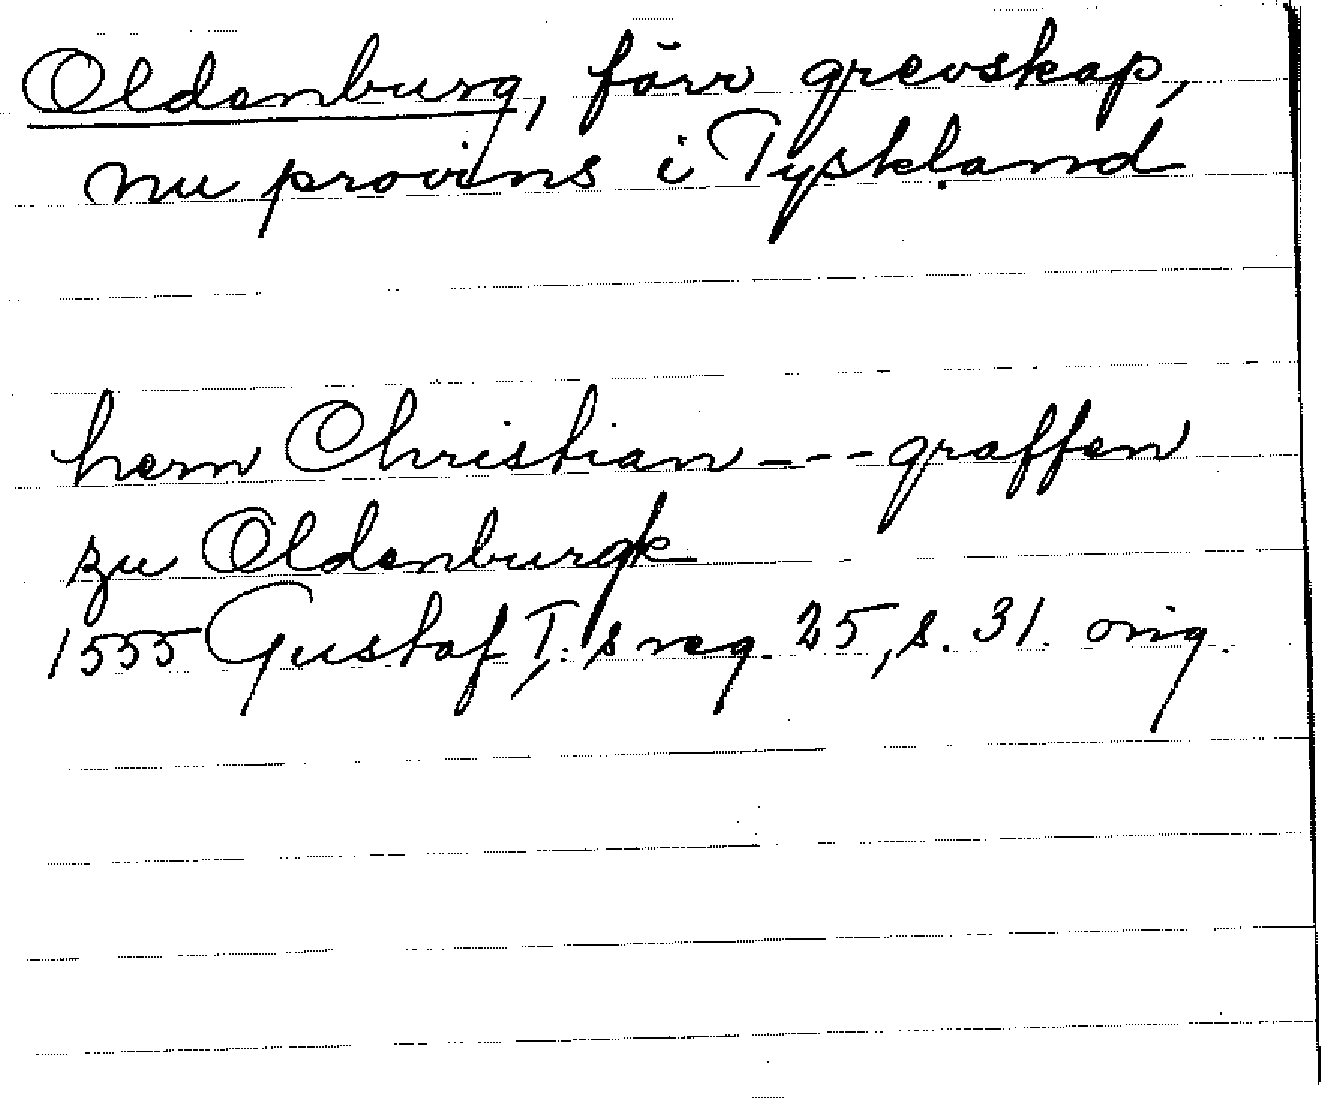 Oldenburg, förr grevskap,
nu provins i Tyskland
hern Christian --- graffen
zu Oldenburgk
1555 Gustaf I:s reg. 25, s. 31. orig.